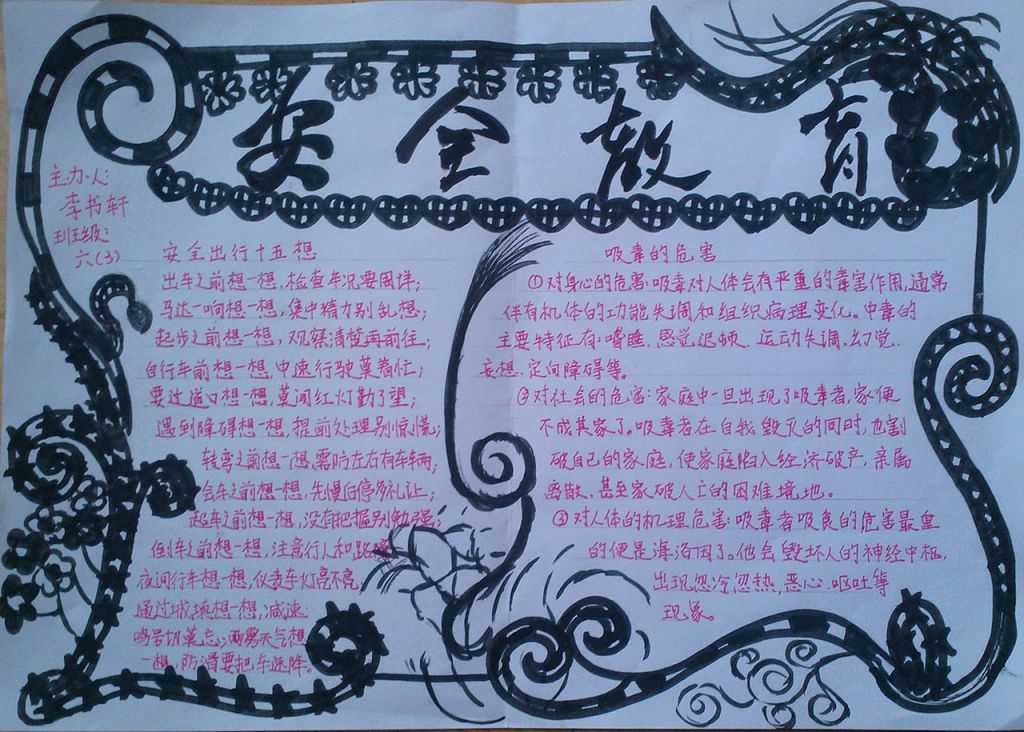 安全教育
主办人:
李书轩
班级:
六(3)
安全出行十五想
出车之前想一想,检查车况要周详;
马达一响想一想,集中精力别乱想;
起步之前想一想,观察清楚再前往;
自行车前想一想,中速行驶莫着忙;
要过道口想一想,莫闯红灯勤了望;
遇到障碍想一想,提前处理别惊慌;
转弯之前想一想,需防左右有车辆;
会车之前想一想,先慢后停多礼让;
超车之前想一想,没有把握别勉强;
倒车之前想一想,注意行人和路障
夜间行车想一想,仪表车灯亮不亮
通过城填想一想,减速
鸣号切莫忘;雨雾天气想
一想,防滑要把车速降。
吸毒的危害
①对身心的危害:吸毒对人体会有严重的毒害作用,通常
伴有机体的功能失调和组织病理变化。中毒的
主要特征有:嗜睡、感觉迟顿、运动失调、幻觉、
妄想、定向障碍等。
②对社会的危害:家庭中一旦出现了吸毒者,家便
不成其家了。吸毒者在自我毁灭的同时,也害
破自己的家庭,使家庭陷入经济破产,亲属
离散,甚至家破人亡的困难境地。
③对人体的机理危害:吸毒者吸食的危害最重
的便是海洛因了。他会毁坏人的神经中枢,
出现忽冷忽热,恶心、呕吐等
现象。